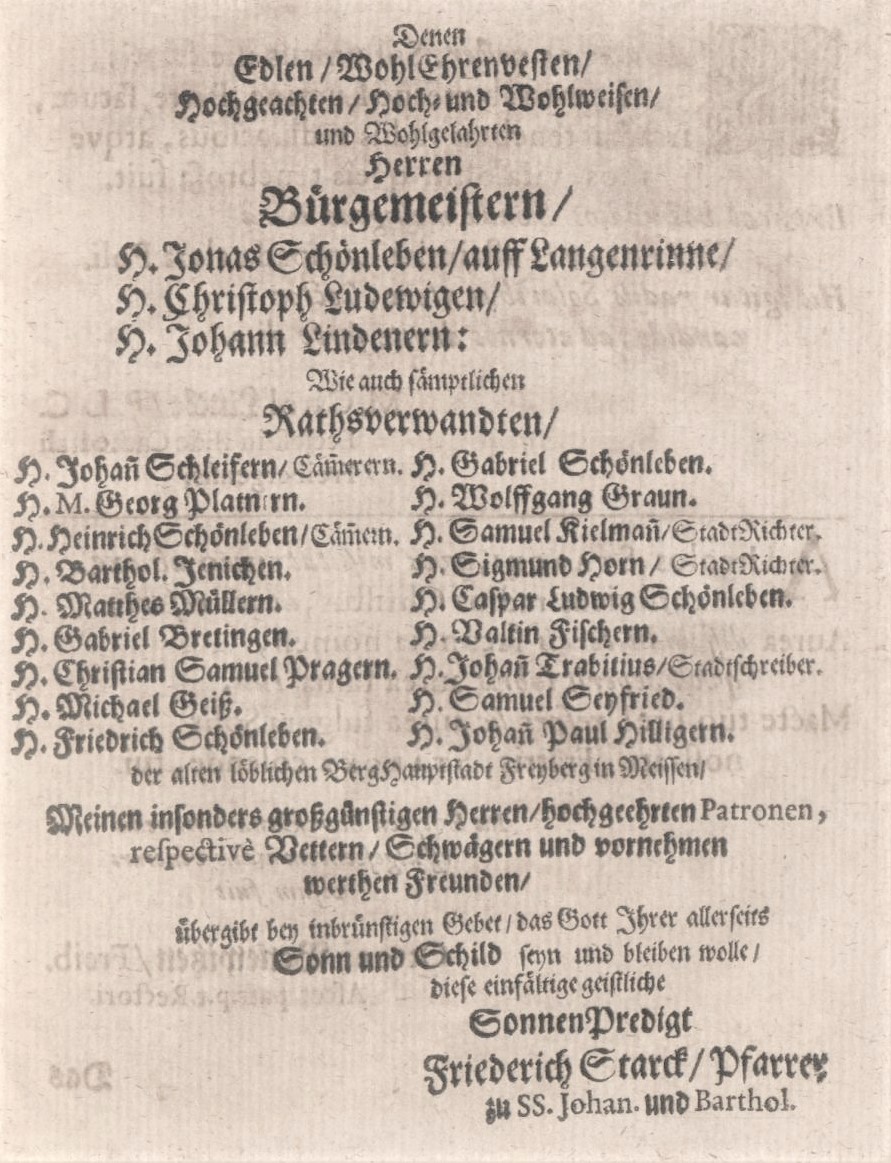 Denen
Edlen / WohlEhrenvesten/
Hochgeachten / Hoch- und Wohlweisen/
und Wohlgelahrten
Herren
Bürgemeistern /
H. Jonas Schönleben/auff Langenrinne/
H. Christoph Ludewigen/
H. Johann Lindenern:
Wie auch sämptlichen
Rathsverwandten/
H. Johan̄ Schleifern/ Cäm̄erern. H. Gabriel Schönleben.
H. M. Georg Platnern. H. Wolffgang Graun.
H. Heinrich Schönleben/Cäm̄ern. H. Samuel Kielman̄/StadtRichter.
H. Barthol. Jenichen. H. Sigmund Horn / StadtRichter.
H. Matthes Müllern. H. Caspar Ludwig Schönleben.
H. Gabriel Bretingen. H. Valtin Fischern.
H. Christian Samuel Pragern. H. Johan̄ Trabitius/Stadtschreiber.
H. Michael Geiß. H. Samuel Seyfried.
H. Friedrich Schönleben. H. Johan̄ Paul Hilligern.
der alten löblichen BergHauptstadt Freyberg in Meissen/
Meinen insonders großgünstigen Herren/hochgeehrten Patronen,
respectivè Vettern / Schwägern und vornehmen
werthen Freunden/
übergibt bey inbrünstigen Gebet / das Gott Ihrer allerseits
Sonn und Schild seyn und bleiben wolle /
diese einfältige geistliche
SonnenPredigt
Friederich Starck/ Pfarrer
zu SS. Johan. und Barthol.